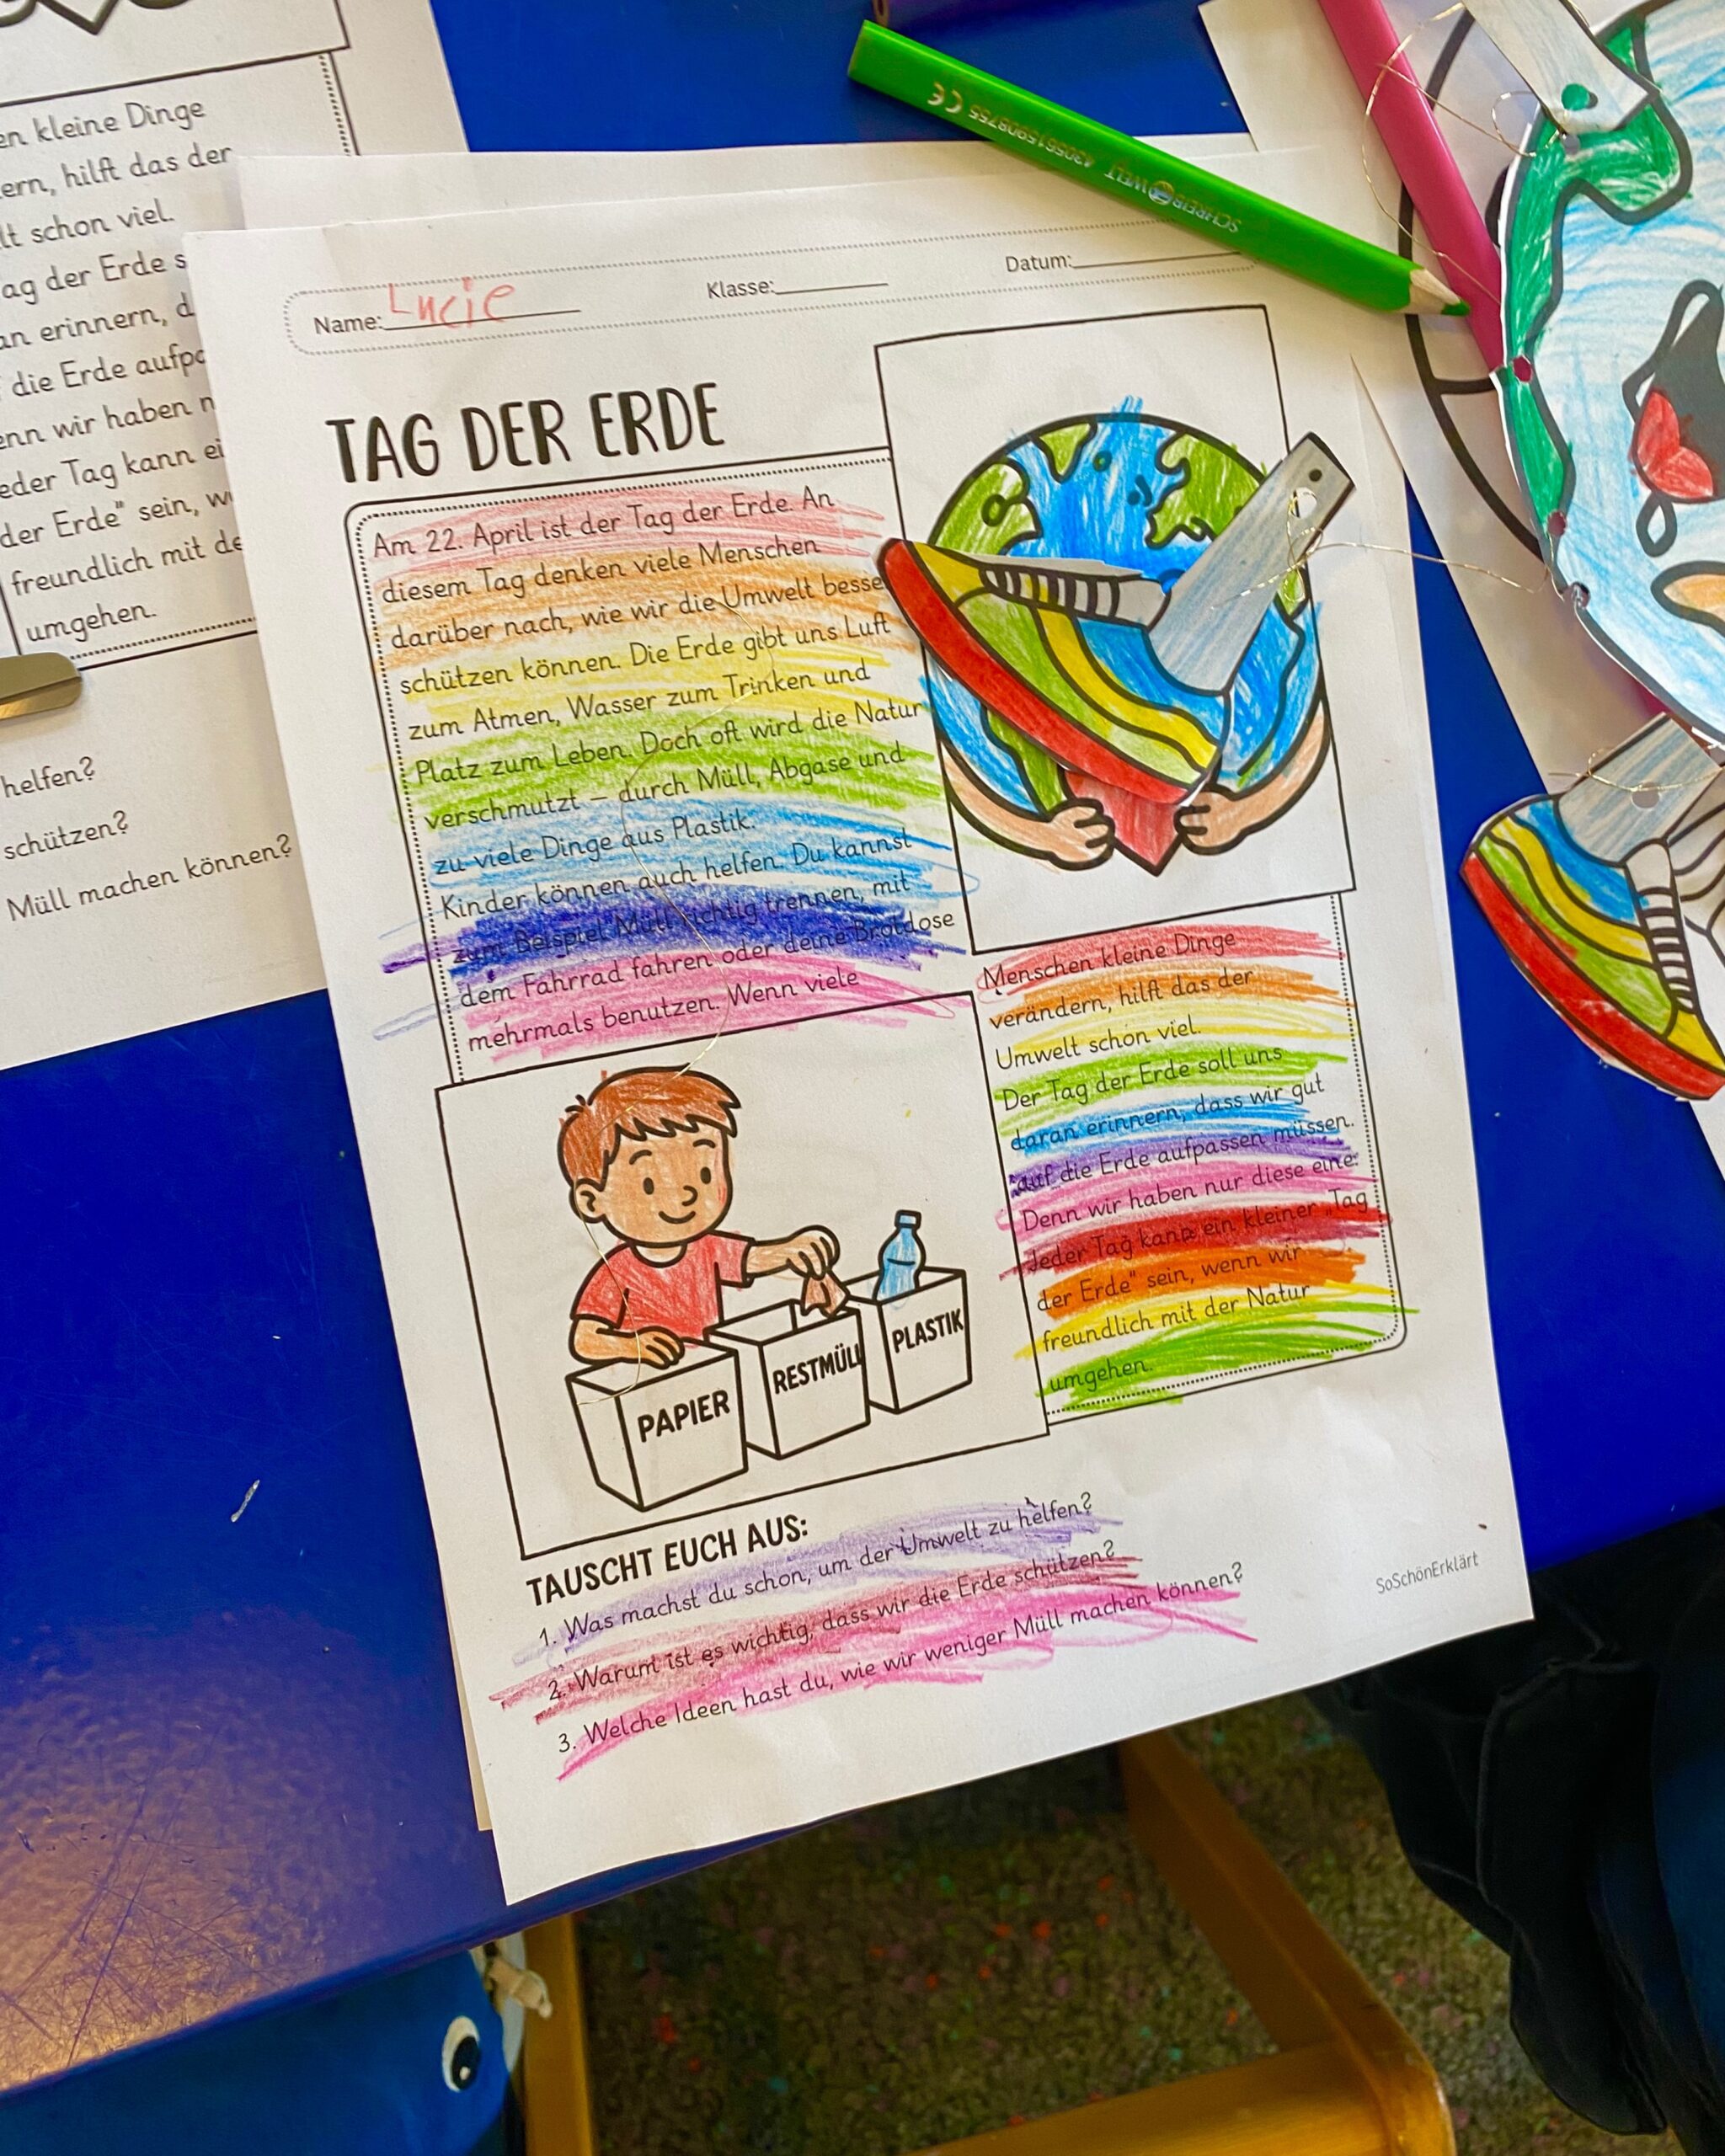 en kleine Dinge
ern, hilft das der
lt schon viel.
ag der Erde s
an erinnern, d
die Erde aufpa
enn wir haben n
eder Tag kann ei
der Erde" sein, w
freundlich mit de
umgehen.
helfen?
schützen?
Müll machen können?
CE 4305615908755 SCHREIBWELT
Name: Lucie
Klasse:
Datum:
TAG DER ERDE
Am 22. April ist der Tag der Erde. An
diesem Tag denken viele Menschen
darüber nach, wie wir die Umwelt besse
schützen können. Die Erde gibt uns Luft
zum Atmen, Wasser zum Trinken und
Platz zum Leben. Doch oft wird die Natur
verschmutzt – durch Müll, Abgase und
zu viele Dinge aus Plastik.
Kinder können auch helfen. Du kannst
zum Beispiel Müll richtig trennen, mit
dem Fahrrad fahren oder deine Brotdose
mehrmals benutzen. Wenn viele
Menschen kleine Dinge
verändern, hilft das der
Umwelt schon viel.
Der Tag der Erde soll uns
daran erinnern, dass wir gut
auf die Erde aufpassen müssen.
Denn wir haben nur diese eine.
Jeder Tag kann ein kleiner „Tag
der Erde" sein, wenn wir
freundlich mit der Natur
umgehen.
PAPIER
RESTMÜLL
PLASTIK
TAUSCHT EUCH AUS:
1. Was machst du schon, um der Umwelt zu helfen?
2. Warum ist es wichtig, dass wir die Erde schützen?
3. Welche Ideen hast du, wie wir weniger Müll machen können?
SoSchönErklärt